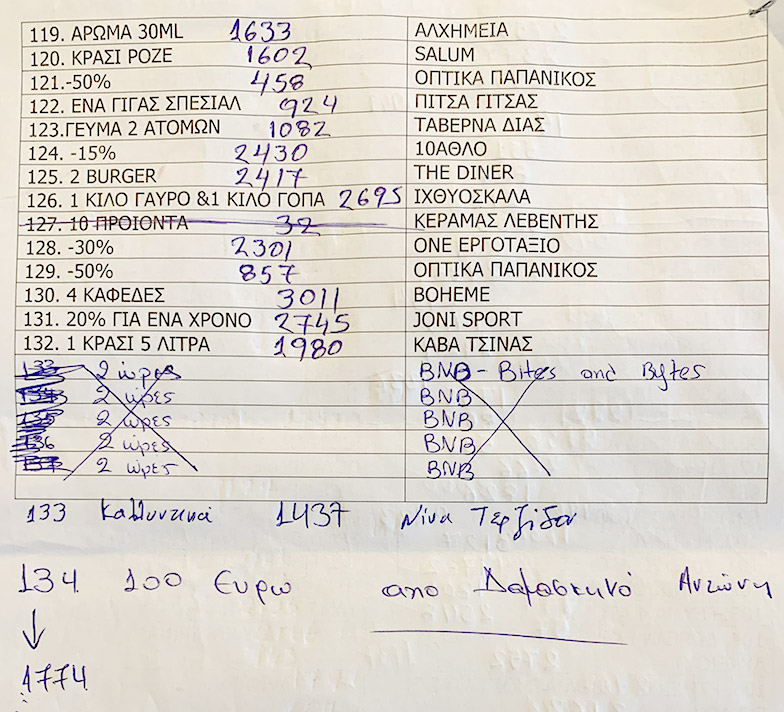 119. ΑΡΩΜΑ 30ML 1633 ΑΛΧΗΜΕΙΑ
120. ΚΡΑΣΙ ΡΟΖΕ 1602 SALUM
121.-50% 458 ΟΠΤΙΚΑ ΠΑΠΑΝΙΚΟΣ
122. ΕΝΑ ΓΙΓΑΣ ΣΠΕΣΙΑΛ 924 ΠΙΤΣΑ ΓΙΤΣΑΣ
123.ΓΕΥΜΑ 2 ΑΤΟΜΩΝ 1082 ΤΑΒΕΡΝΑ ΔΙΑΣ
124. -15% 2430 10ΑΘΛΟ
125. 2 BURGER 2417 THE DINER
126. 1 ΚΙΛΟ ΓΑΥΡΟ &1 ΚΙΛΟ ΓΟΠΑ 2695 ΙΧΘΥΟΣΚΑΛΑ
127. 10 ΠΡΟΙΟΝΤΑ 32 ΚΕΡΑΜΑΣ ΛΕΒΕΝΤΗΣ
128. -30% 2301 ΟΝΕ ΕΡΓΟΤΑΞΙΟ
129. -50% 857 ΟΠΤΙΚΑ ΠΑΠΑΝΙΚΟΣ
130. 4 ΚΑΦΕΔΕΣ 3011 BOHEME
131. 20% ΓΙΑ ΕΝΑ ΧΡΟΝΟ 2745 JONI SPORT
132. 1 ΚΡΑΣΙ 5 ΛΙΤΡΑ 1980 ΚΑΒΑ ΤΣΙΝΑΣ
133 2 ώρες BNB - Bites and Bytes
134 2 ώρες BNB
135 2 ώρες BNB
136 2 ώρες BNB
137 2 ώρες BNB
133 Καλλυντικά 1437 Νίνα Τερζίδου
134 100 Ευρώ απο Δαμασκηνό Αντώνη
↓
1774